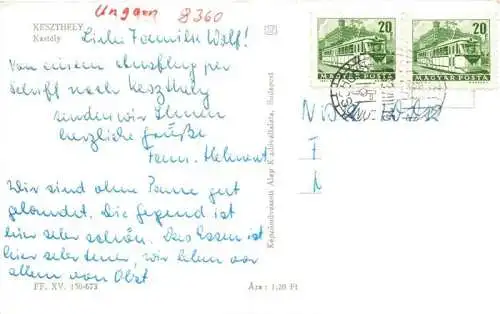 Ungarn 8360
KESZTHELY
Kastély
Liebe Familie Wolf!
Von einem Ausflug per
Schiff nach Keszthely
senden wir Ihnen
herzliche Grüße
Fam. Helmert
Wir sind ohne Panne gut
gelandet. Die Gegend ist
hier sehr schön. Das Essen ist
hier sehr teuer, wir leben vor
allem von Obst
FF. XV. 150-673
Ára: 1,20 Ft
Képzőművészeti Alap Kiadóvállalata, Budapest
20
MAGYAR POSTA
20
MAGYAR POSTA